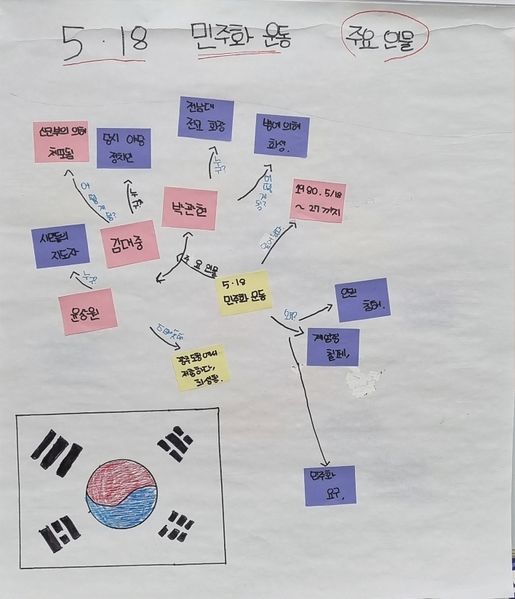 5·18 민주화 운동 주요 인물
신군부의 의해
체포됨
당시 야당
정치인
전남대
전교 회장
병에 의해
희생.
1980. 5/18
~ 27까지
박관현
김대중
시민들의
지도자
윤상원
누구?
누구?
누구?
주요 인물
5·18
민주화 운동
왜?
인권
침해.
계엄령
철폐,
광주도청에서
저항하다,
희생됨.
민주화
요구.